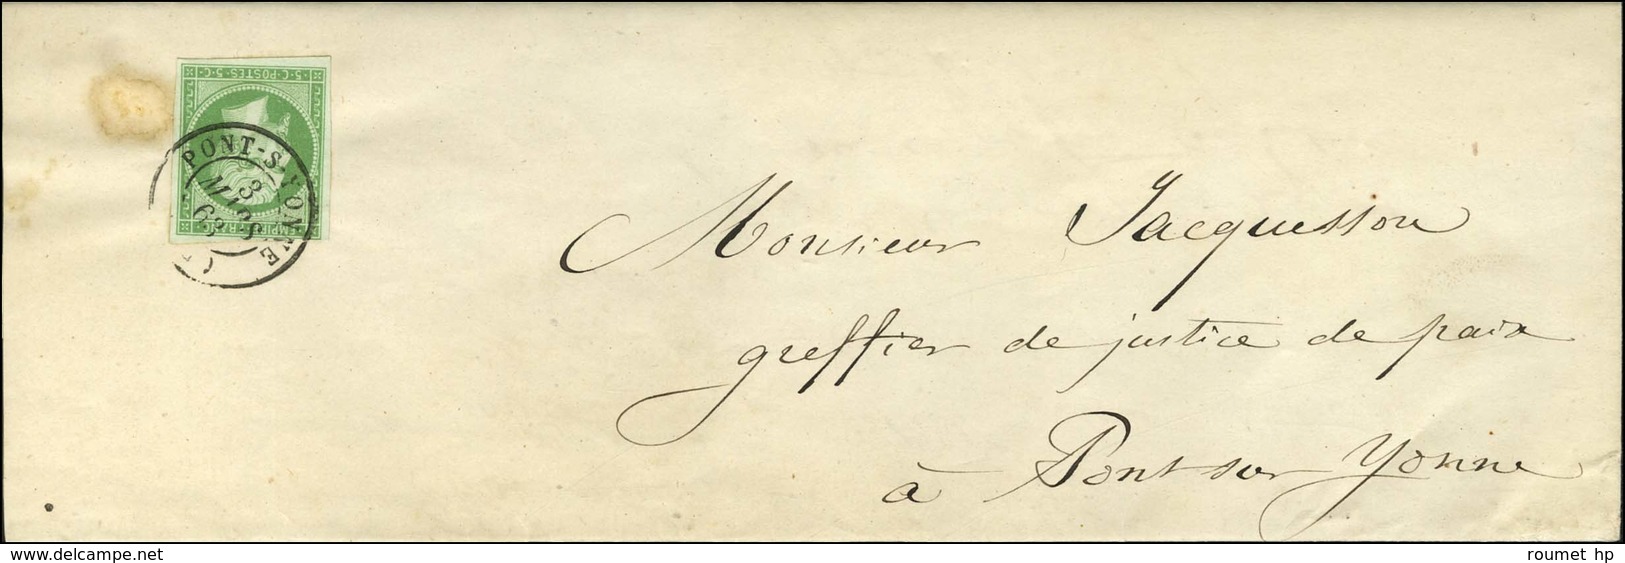 5·C·POSTES·5·C·
PONT-S-YONNE
3
63
Monsieur Jacquesson
greffier de justice de paix
à Pont sur Yonne
www.delcampe.net
roumet hp